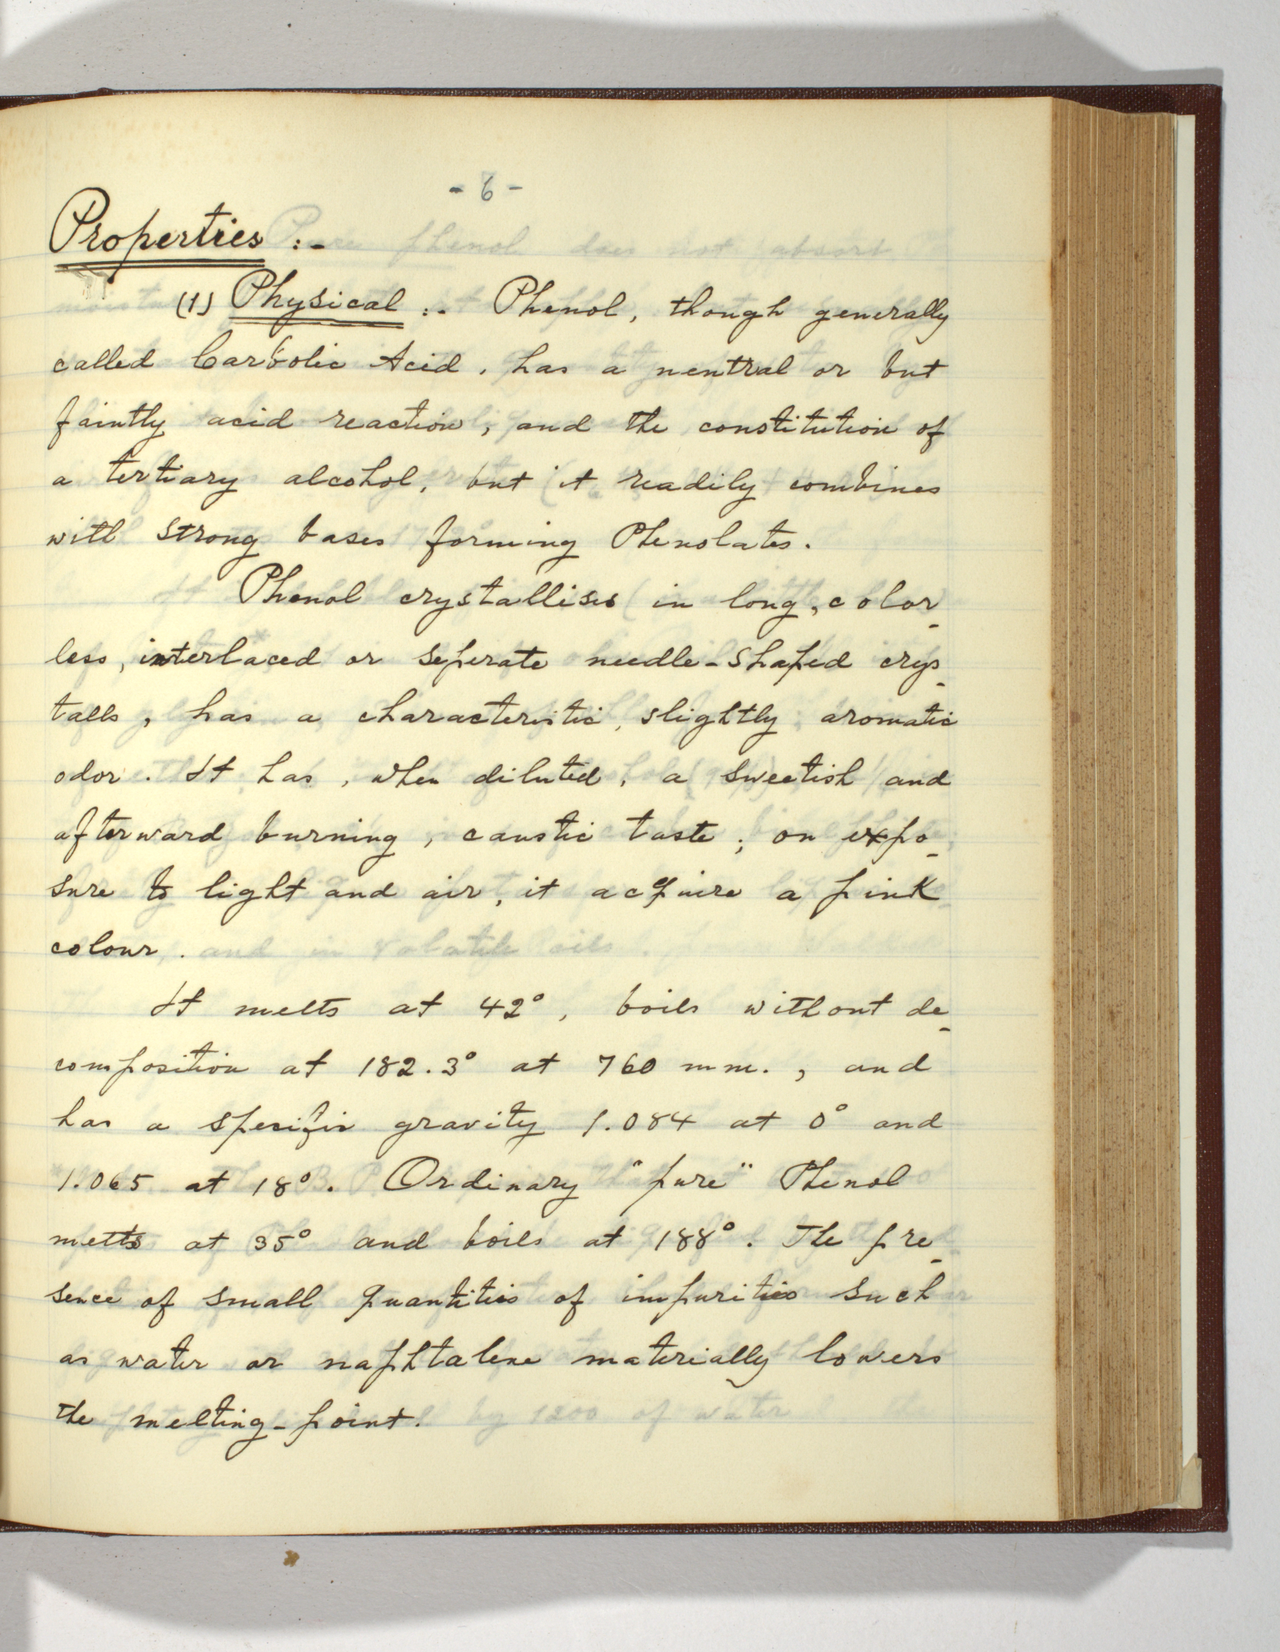 - 6 -
Properties :-
(1) Physical :- Phenol, though generally
called Carbolic Acid, has a neutral or but
faintly acid reaction, and the constitution of
a tertiary alcohol, but it readily combines
with strong bases forming Phenolates.
Phenol crystallises in long, color-
less, interlaced or seperate needle-shaped crys-
talls, has a characteristic, slightly aromatic
odor. It has, when diluted, a sweetish and
afterward burning, caustic taste; on expo-
sure to light and air, it acquire a pink
colour.
It melts at 42°, boils without de-
composition at 182.3° at 760 mm., and
has a spesific gravity 1.084 at 0° and
1.065 at 18°. Ordinary "pure" Phenol
melts at 35° and boils at 188°. The pre-
sence of small quantities of impurities such
as water or naphtalene materially lowers
the melting-point.